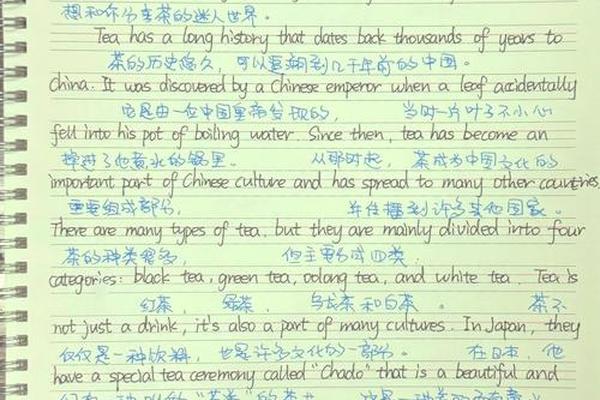 想和你分享茶的迷人世界。
Tea has a long history that dates back thousands of years to
茶的历史悠久，可以追溯到几千年前的中国。
China. It was discovered by a Chinese emperor when a leaf accidentally
它是由一位中国皇帝发现的，当时一片叶子不小心
fell into his pot of boiling water. Since then, tea has become an
掉进了他煮水的锅里。从那时起，茶成为中国文化的
important part of Chinese culture and has spread to many other countries.
重要组成部分，并传播到许多其他国家。
There are many types of tea, but they are mainly divided into four
茶的种类很多，但主要分成四类
categories: black tea, green tea, oolong tea, and white tea. Tea is
红茶，绿茶，乌龙茶和白茶。茶不
not just a drink, it's also a part of many cultures. In Japan, they
仅仅是一种饮料，也是许多文化的一部分。在日本，他
have a special tea ceremony called "Chado" that is a beautiful and